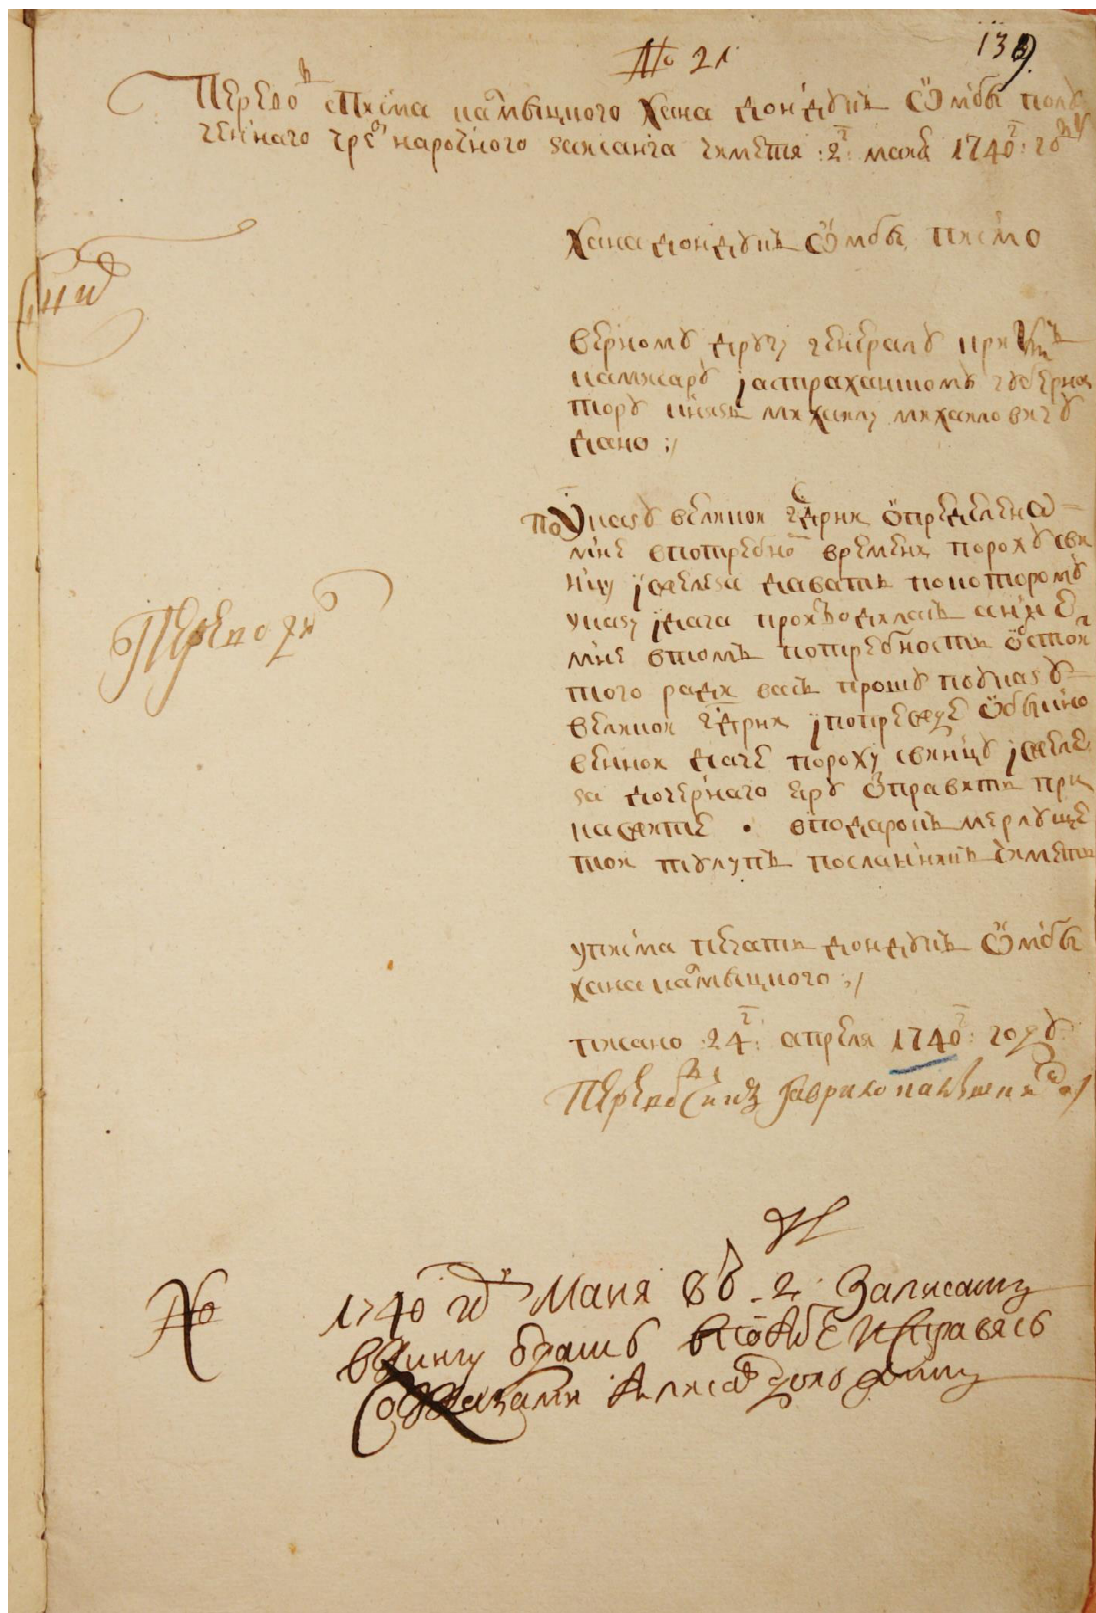 № 21
139
Перево с писма калмыцкого хана Дондукъ Омбы полу
ченнаго чрез нарочного заисанга Чиметя :2г: маия 1740г: году
Хана Дондукъ Омбы писмо
верному другу генералу и кри
камисару и астраханскому губерна
тору князь Михаилу Михаиловичу
дано :/
По указу великои гсдрни определено
мне в потребно время пороху сви
нцу и железа давать по которому
указу и дача производилась а ныне
мне в томъ потребность состои
того ради васъ прошу по указу
великои гсдрни и по прежде обыкно
веннои даче пороху свинцу и желе
за до Чернаго Яру отправить при
кажите . в подарокъ мерлуще
тои тулупъ посланникъ Чиметь
у писма печать Дондукъ Омбы
хана калмыцкого :/
писано :24г: апреля 1740г: году
Перевод
1740 году Маия в 2 Записать
в книгу отдать и справясь